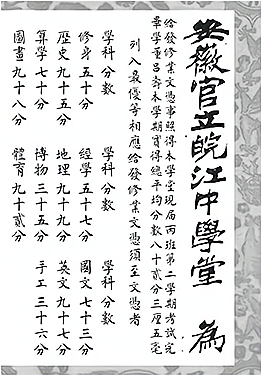 安徽官立皖江中學堂 為
給發修業文憑事照得本學堂現届丙班第二學期考試完
畢學呂壽本學期實得總平均分數八十貳分三厘五毫
列入最優等相應給發修業文憑須至文憑者
學科分數 學科分數 學科分數
修身五十分 經學五十七分 國文七十三分
歷史九十五分 地理九十九分 英文九十七分
算學七十分 博物三十五分 手工三十六分
圖畫九十八分 體育九十貳分